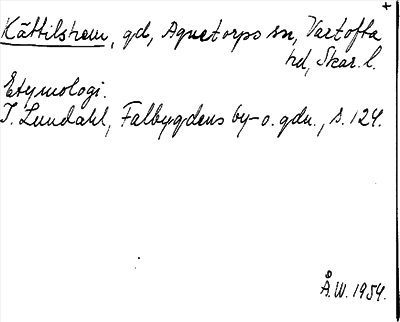 +
Kättilshem, gd, Agnetorps sn, Vartofta
hd, Skar. l.
Etymologi.
I. Lundahl, Falbygdens by- o. gdn., s. 124.
Å.W. 1954.